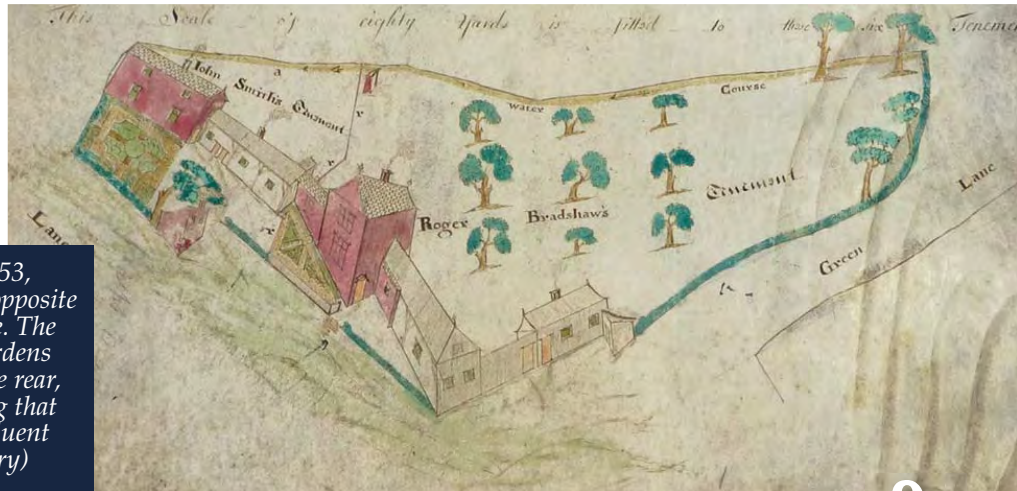 This Scale of eighty Yards is fitted to these six Tenemen
John Smith's Tenement
a
water Course
r
r
r
Roger Bradshaw's Tenement
Green Lane
Lane
53,
opposite
e. The
rdens
e rear,
g that
uent
ry)